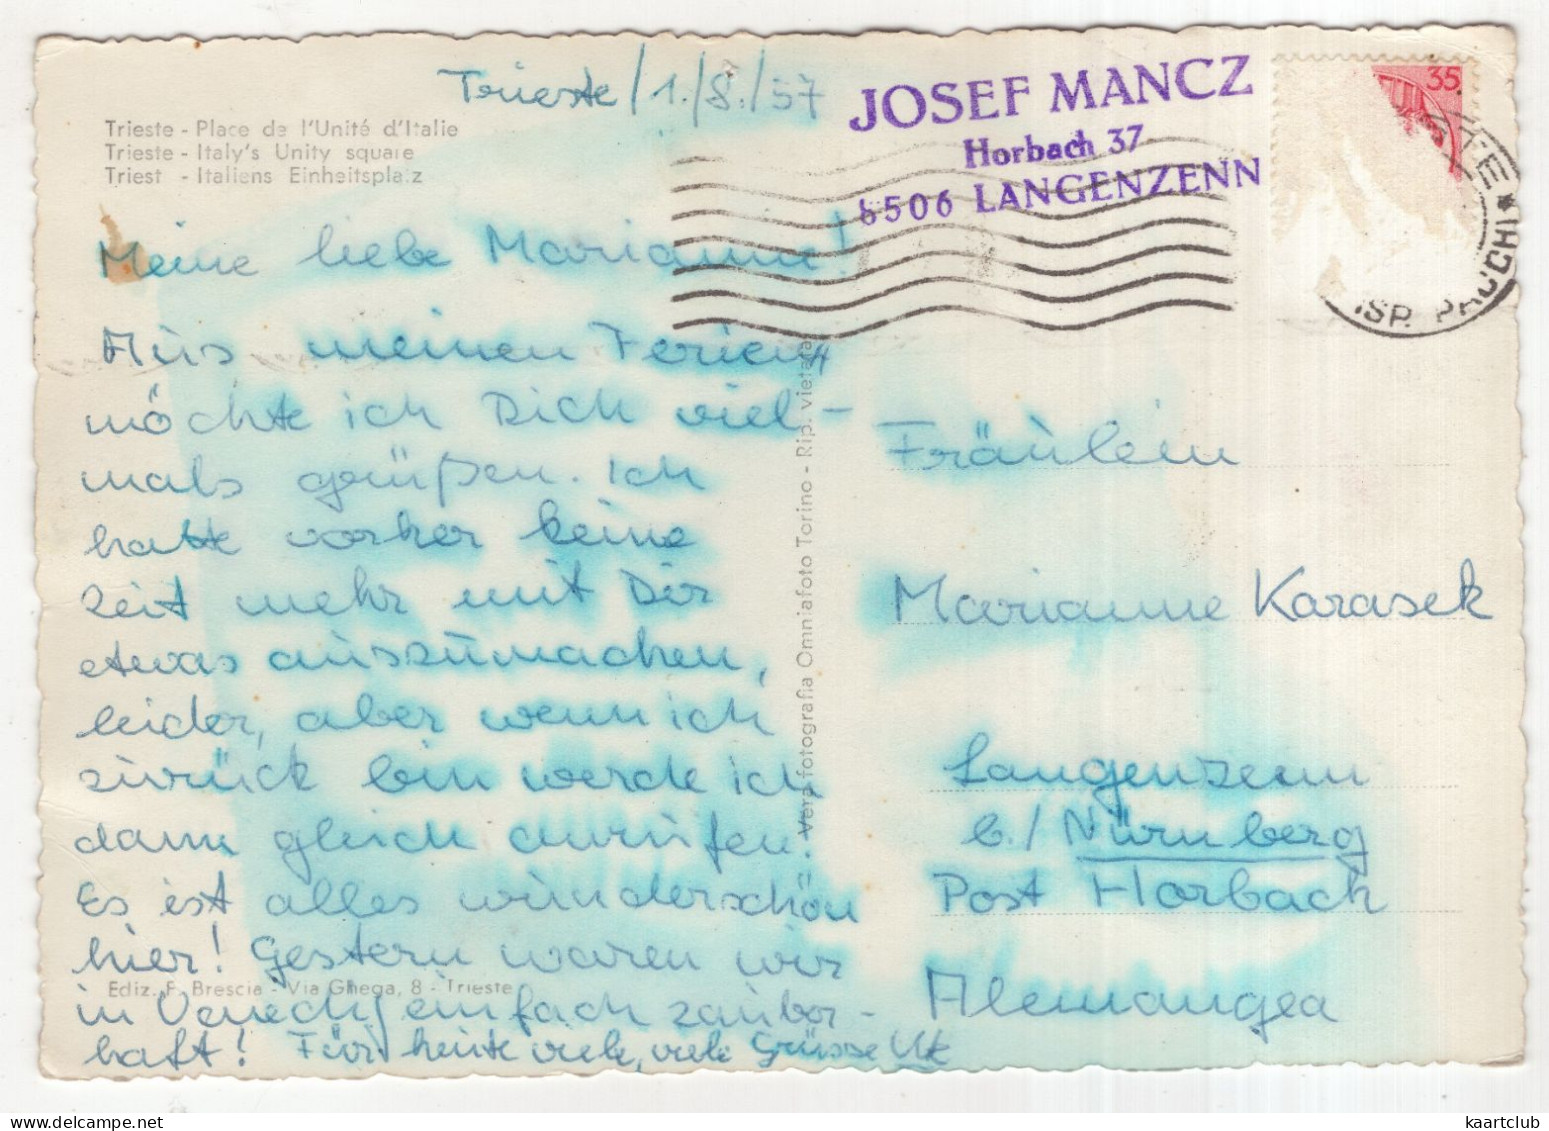 Trieste/1./8./57
Trieste - Place de l'Unité d'Italie
Trieste - Italy's Unity square
Triest - Italiens Einheitsplatz
JOSEF MANCZ
Horbach 37
8506 LANGENZENN
35
ISP. PAC'CHI
Meine liebe Marianne!
Aus meinen Ferien
möchte ich Dich viel-
mals grüßen. Ich
hatte vorher keine
Zeit mehr mit Dir
etwas auszumachen,
leider, aber wenn ich
zurück bin werde ich
dann gleich anrufen.
Es ist alles wunderschön
hier! Gestern waren wir
in Venedig einfach zauber-
haft! Für heute viele, viele Grüsse
Ediz. F. Brescia - Via Ghega, 8 - Trieste
Vera fotografia Omniafoto Torino - Rip. vietata
Fräulein
Marianne Karasek
Langenzenn
b./Nürnberg
Post Horbach
Alemangea
kaartclub